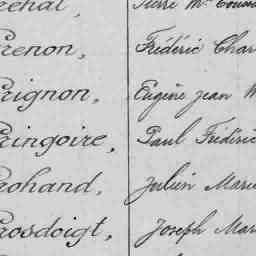 Pierre
Grenon, Frédéric Char
Grignon, Eugène Jean M
Gringoire, Paul Frédéric
Grohand, Julien Marie
Grosdoigt, Joseph Mar